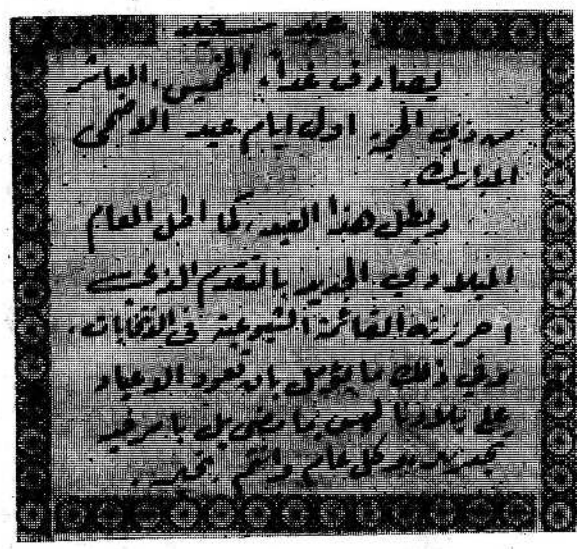 عيد سعيد
يصادف غداً، الخميس، العاشر
من ذي الحجة اول ايام عيد الاضحى
المبارك.
ويطل هذا العيد، كما اطل العام
الميلادي الجديد بالتقدم الذي
احرزته القائمة الشيوعية في الانتخابات،
وفي ذلك ما يؤمل بان تعود الاعياد
على بلادنا ليس بما مضى بل بامر فيه
تجديد.. وكل عام وانتم بخير..